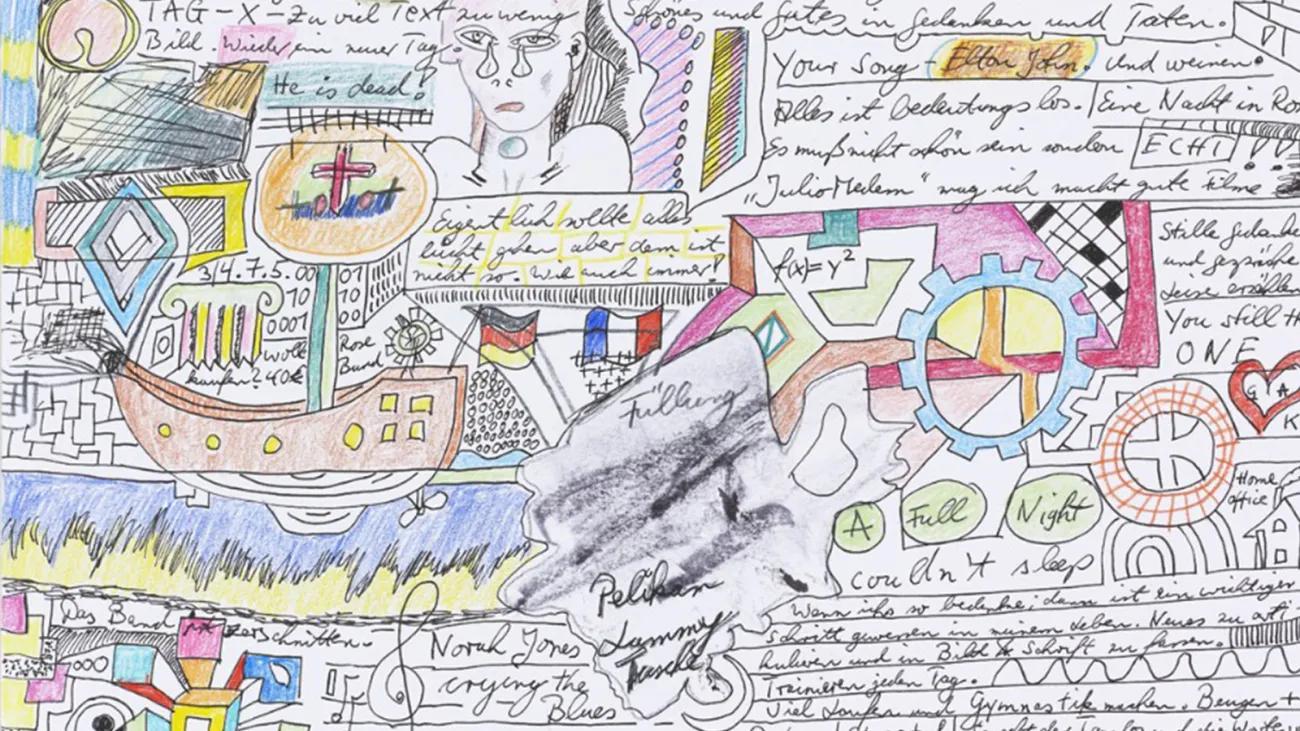 TAG-X-Zu viel Text zu wenig
Bild. Wieder ein neuer Tag.
He is dead!
Schönes und Gutes in Gedanken und Taten.
Your Song - Elton John. Und weinen.
Alles ist bedeutungslos. Eine Nacht in Ro
Es muß nicht schön sein sondern ECHT!
"Julio Medem" mag ich macht gute Filme
Eigentlich sollte alles
leicht gehen aber dem ist
nicht so. Wie auch immer!
3/4.7.5.00
01
10
10
0001
00
Wolle
kaufen? 40€
Rose
Band
f(x)=y²
Stille Gedanke
und Gespräche
Leise erzählen
You still
ONE
G A
K
Füllung
Pelikan
Lammy
Tasche
A Full Night
couldn't sleep
Home
office
Das Band zerschnitten.
Norah Jones
crying the
Blues
Wenn ichs so bedenke; dann ist ein wichtiger
Schritt gewesen in meinem Leben. Neues zu arti-
kulieren und in Bild & Schrift zu fassen.
Trainieren jeden Tag.
Viel Laufen und Gymnastik machen. Beugen +